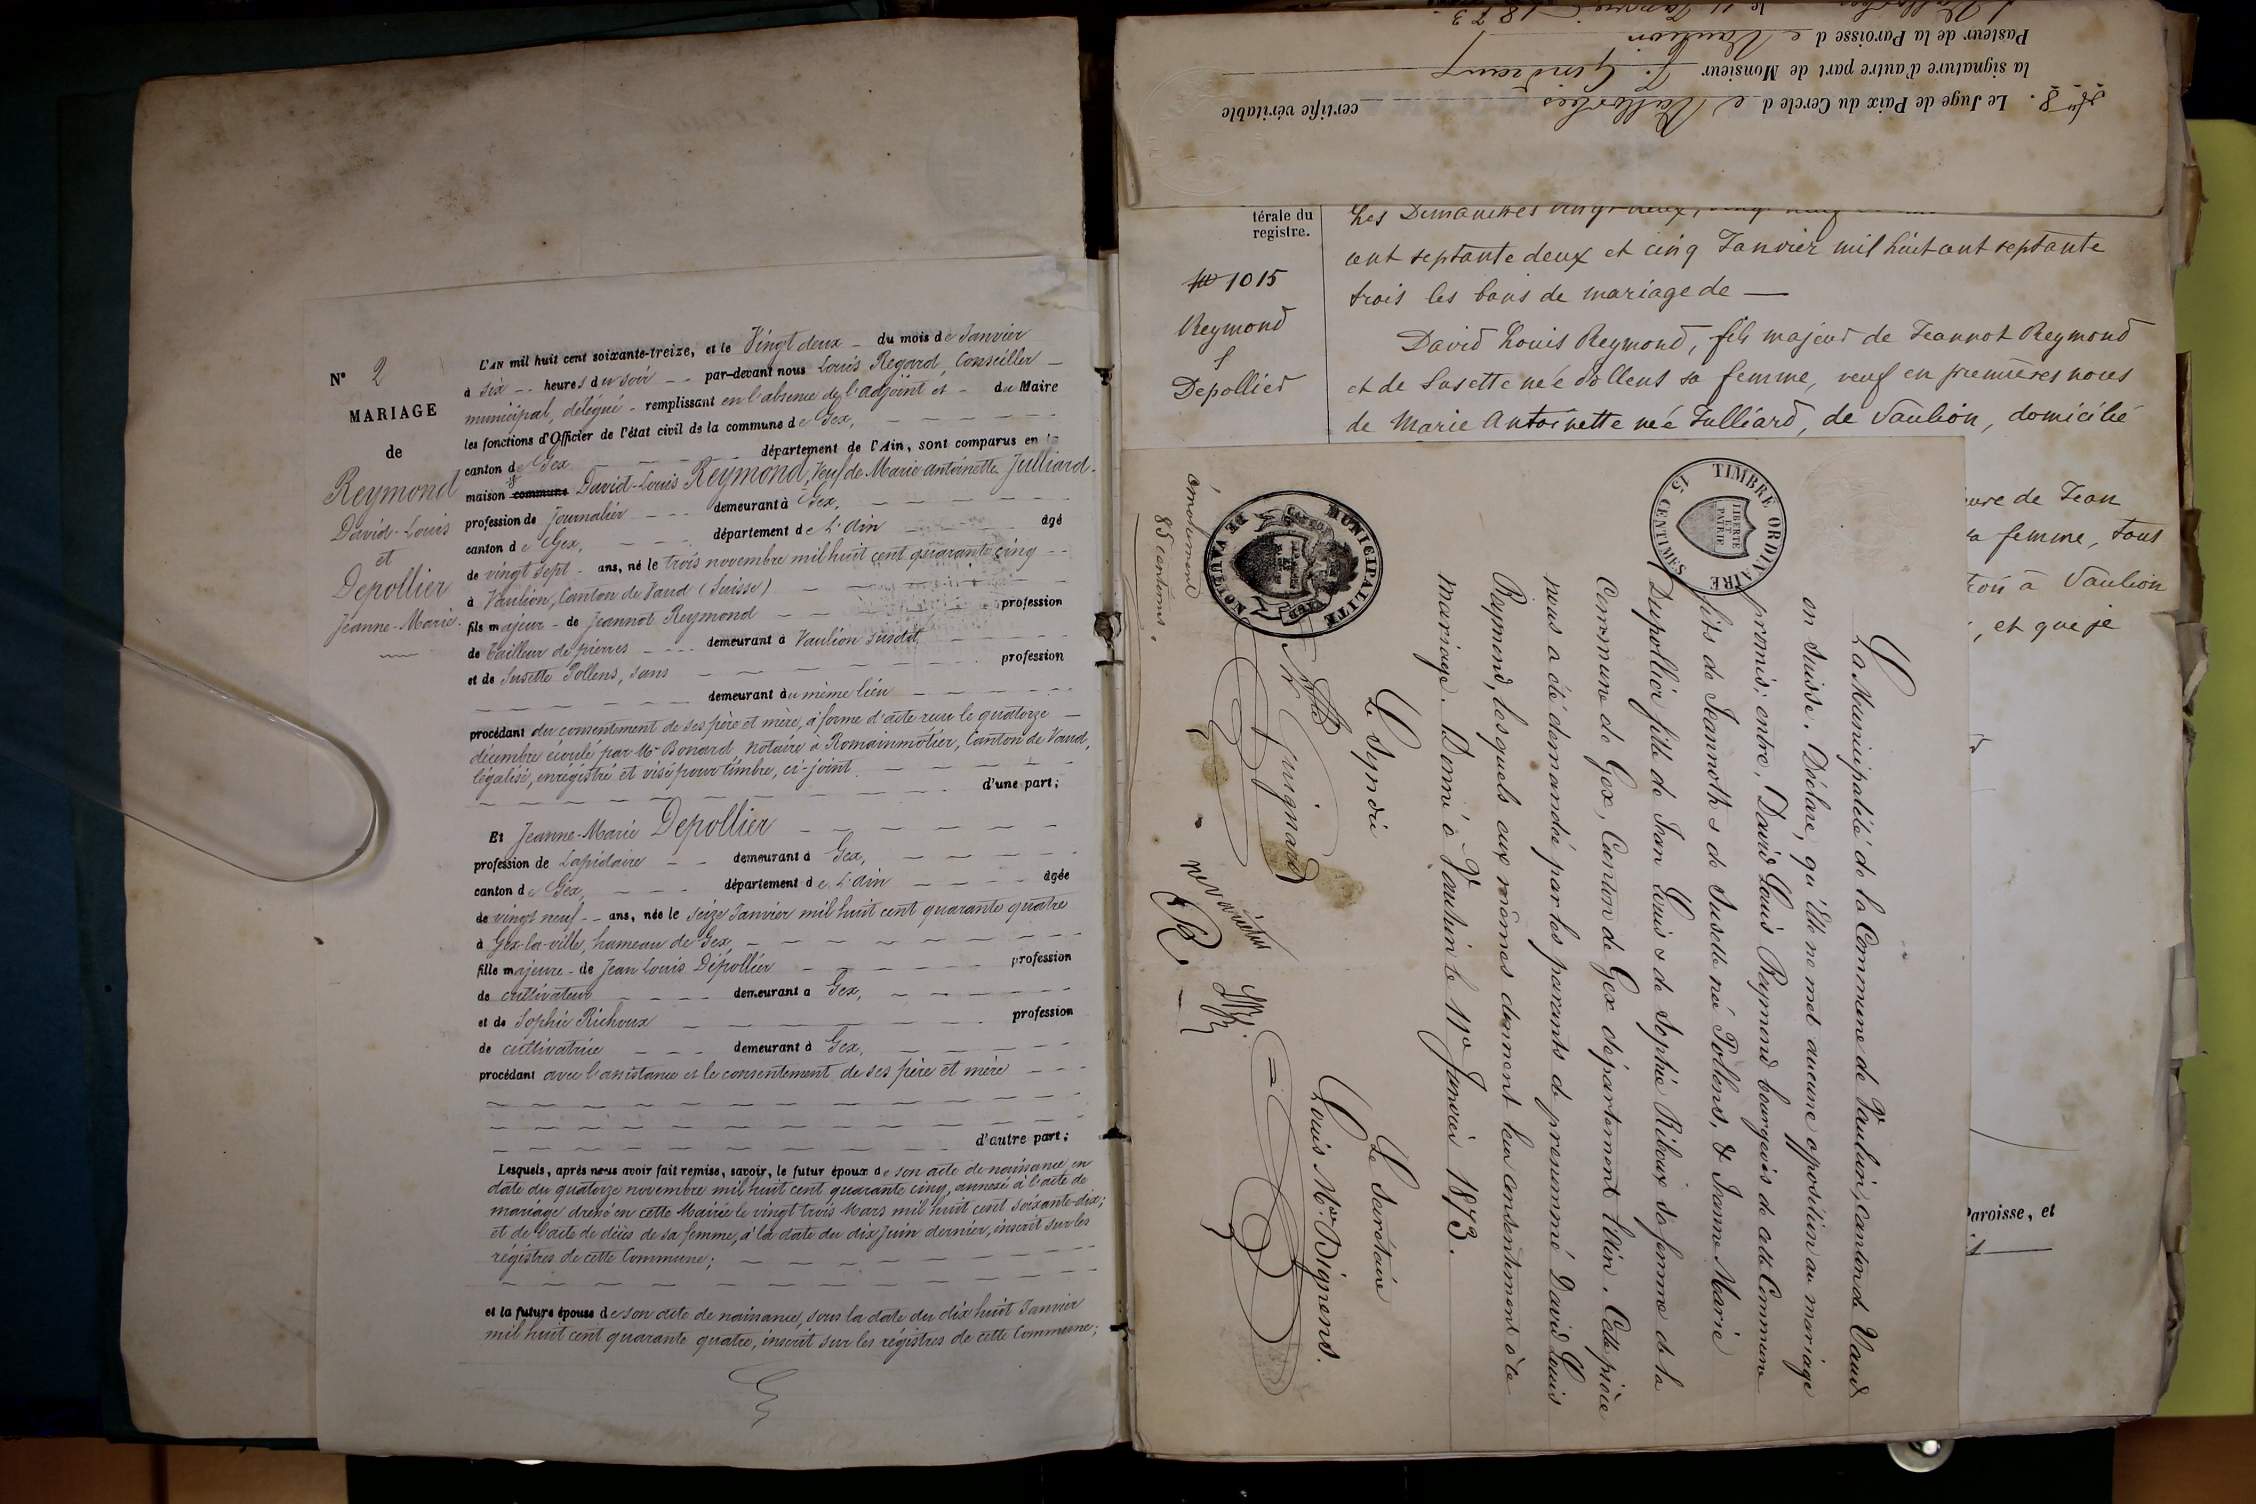 N° 2
MARIAGE
de
Reymond
David-Louis
et
Depollier
Jeanne-Marie.
L'AN mil huit cent soixante-treize, et le Vingt deux du mois de Janvier
à six heures du soir par-devant nous Louis Regard, Conseiller
municipal, délégué remplissant en l'absence de l'adjoint et du Maire
les fonctions d'Officier de l'état civil de la commune de Gex,
canton de Gex département de l'Ain, sont comparus en la
maison commune David-Louis Reymond, Veuf de Marie antoinette Julliard.
profession de Journalier demeurant à Gex,
canton de Gex, département de L'Ain âgé
de vingt sept ans, né le trois novembre mil huit cent quarante cinq
à Vaulion, Canton de Vaud (Suisse)
fils majeur de Jeannot Reymond profession
de tailleur de pierres demeurant à Vaulion susdit,
et de Susette Pollens, sans profession
demeurant du même lieu
procédant du consentement de ses père et mère, à forme d'acte reçu le quatorze
décembre écoulé par Me Bonard notaire à Romainmotier, Canton de Vaud,
légalisé, enrégistré et visé pour timbre, ci-joint
d'une part;
Et Jeanne-Marie Depollier
profession de Lapidaire demeurant à Gex,
canton de Gex, département de L'Ain âgée
de vingt neuf ans, née le seize Janvier mil huit cent quarante quatre
à Gex-la-ville, hameau de Gex,
fille majeure de Jean Louis Dépollier profession
de cultivateur demeurant à Gex,
et de Sophie Richoux profession
de cultivatrice demeurant à Gex,
procédant avec l'assistance et le consentement de ses père et mère
d'autre part;
Lesquels, après nous avoir fait remise, savoir, le futur époux de son acte de naissance en
date du quatorze novembre mil huit cent quarante cinq, annexé à l'acte de
mariage dressé en cette Mairie le vingt trois Mars mil huit cent soixante-dix;
et de l'acte de décès de sa femme, à la date du dix Juin dernier, inscrit sur les
régistres de cette Commune;
et la future épouse de son acte de naissance, sous la date du dix huit Janvier
mil huit cent quarante quatre, inscrit sur les régistres de cette Commune;
Le Juge de Paix du Cercle de Vallorbes certifie véritable
la signature d'autre part de Monsieur
Pasteur de la Paroisse de Vaulion
Janvier 1873
térale du
registre.
1015
Reymond
&
Depollier
cent septante deux et cinq Janvier mil huit cent septante
trois les bans de mariage de
David Louis Reymond, fils majeur de Jeannot Reymond
et de Susette née Pollens sa femme, veuf en premières noces
de Marie Antoinette née Julliard, de Vaulion, domicilié
de Jean
femme, tous
à Vaulion
, et que je
Paroisse, et
TIMBRE ORDINAIRE
15 CENTIMES
LIBERTÉ
ET
PATRIE
MUNICIPALITÉ DE VAULION
émolument
85 centimes.
La Municipalité de la Commune de Vaulion, Canton de Vaud
en Suisse, Déclare, qu'Elle ne met aucune oposition au mariage
promis, entre, David Louis Reymond bourgeois de cette Commune
fils de Jeannoth & de Susette née Pollens, & Jeanne Marie
Depollier fille de Jean Louis & de Sophie Riboux sa femme de la
Commune de Gex, Canton de Gex département l'Ain. Cette pièce
nous a été demandé par les parents du prenommé David Louis
Reymond, lesquels eux mêmes donnent leur consentement à ce
mariage. Donné à Vaulion le 11e Janvier 1873.
Le Syndic
Guignard
Le Secrétaire
Louis Mce Bignens.
ne varietur